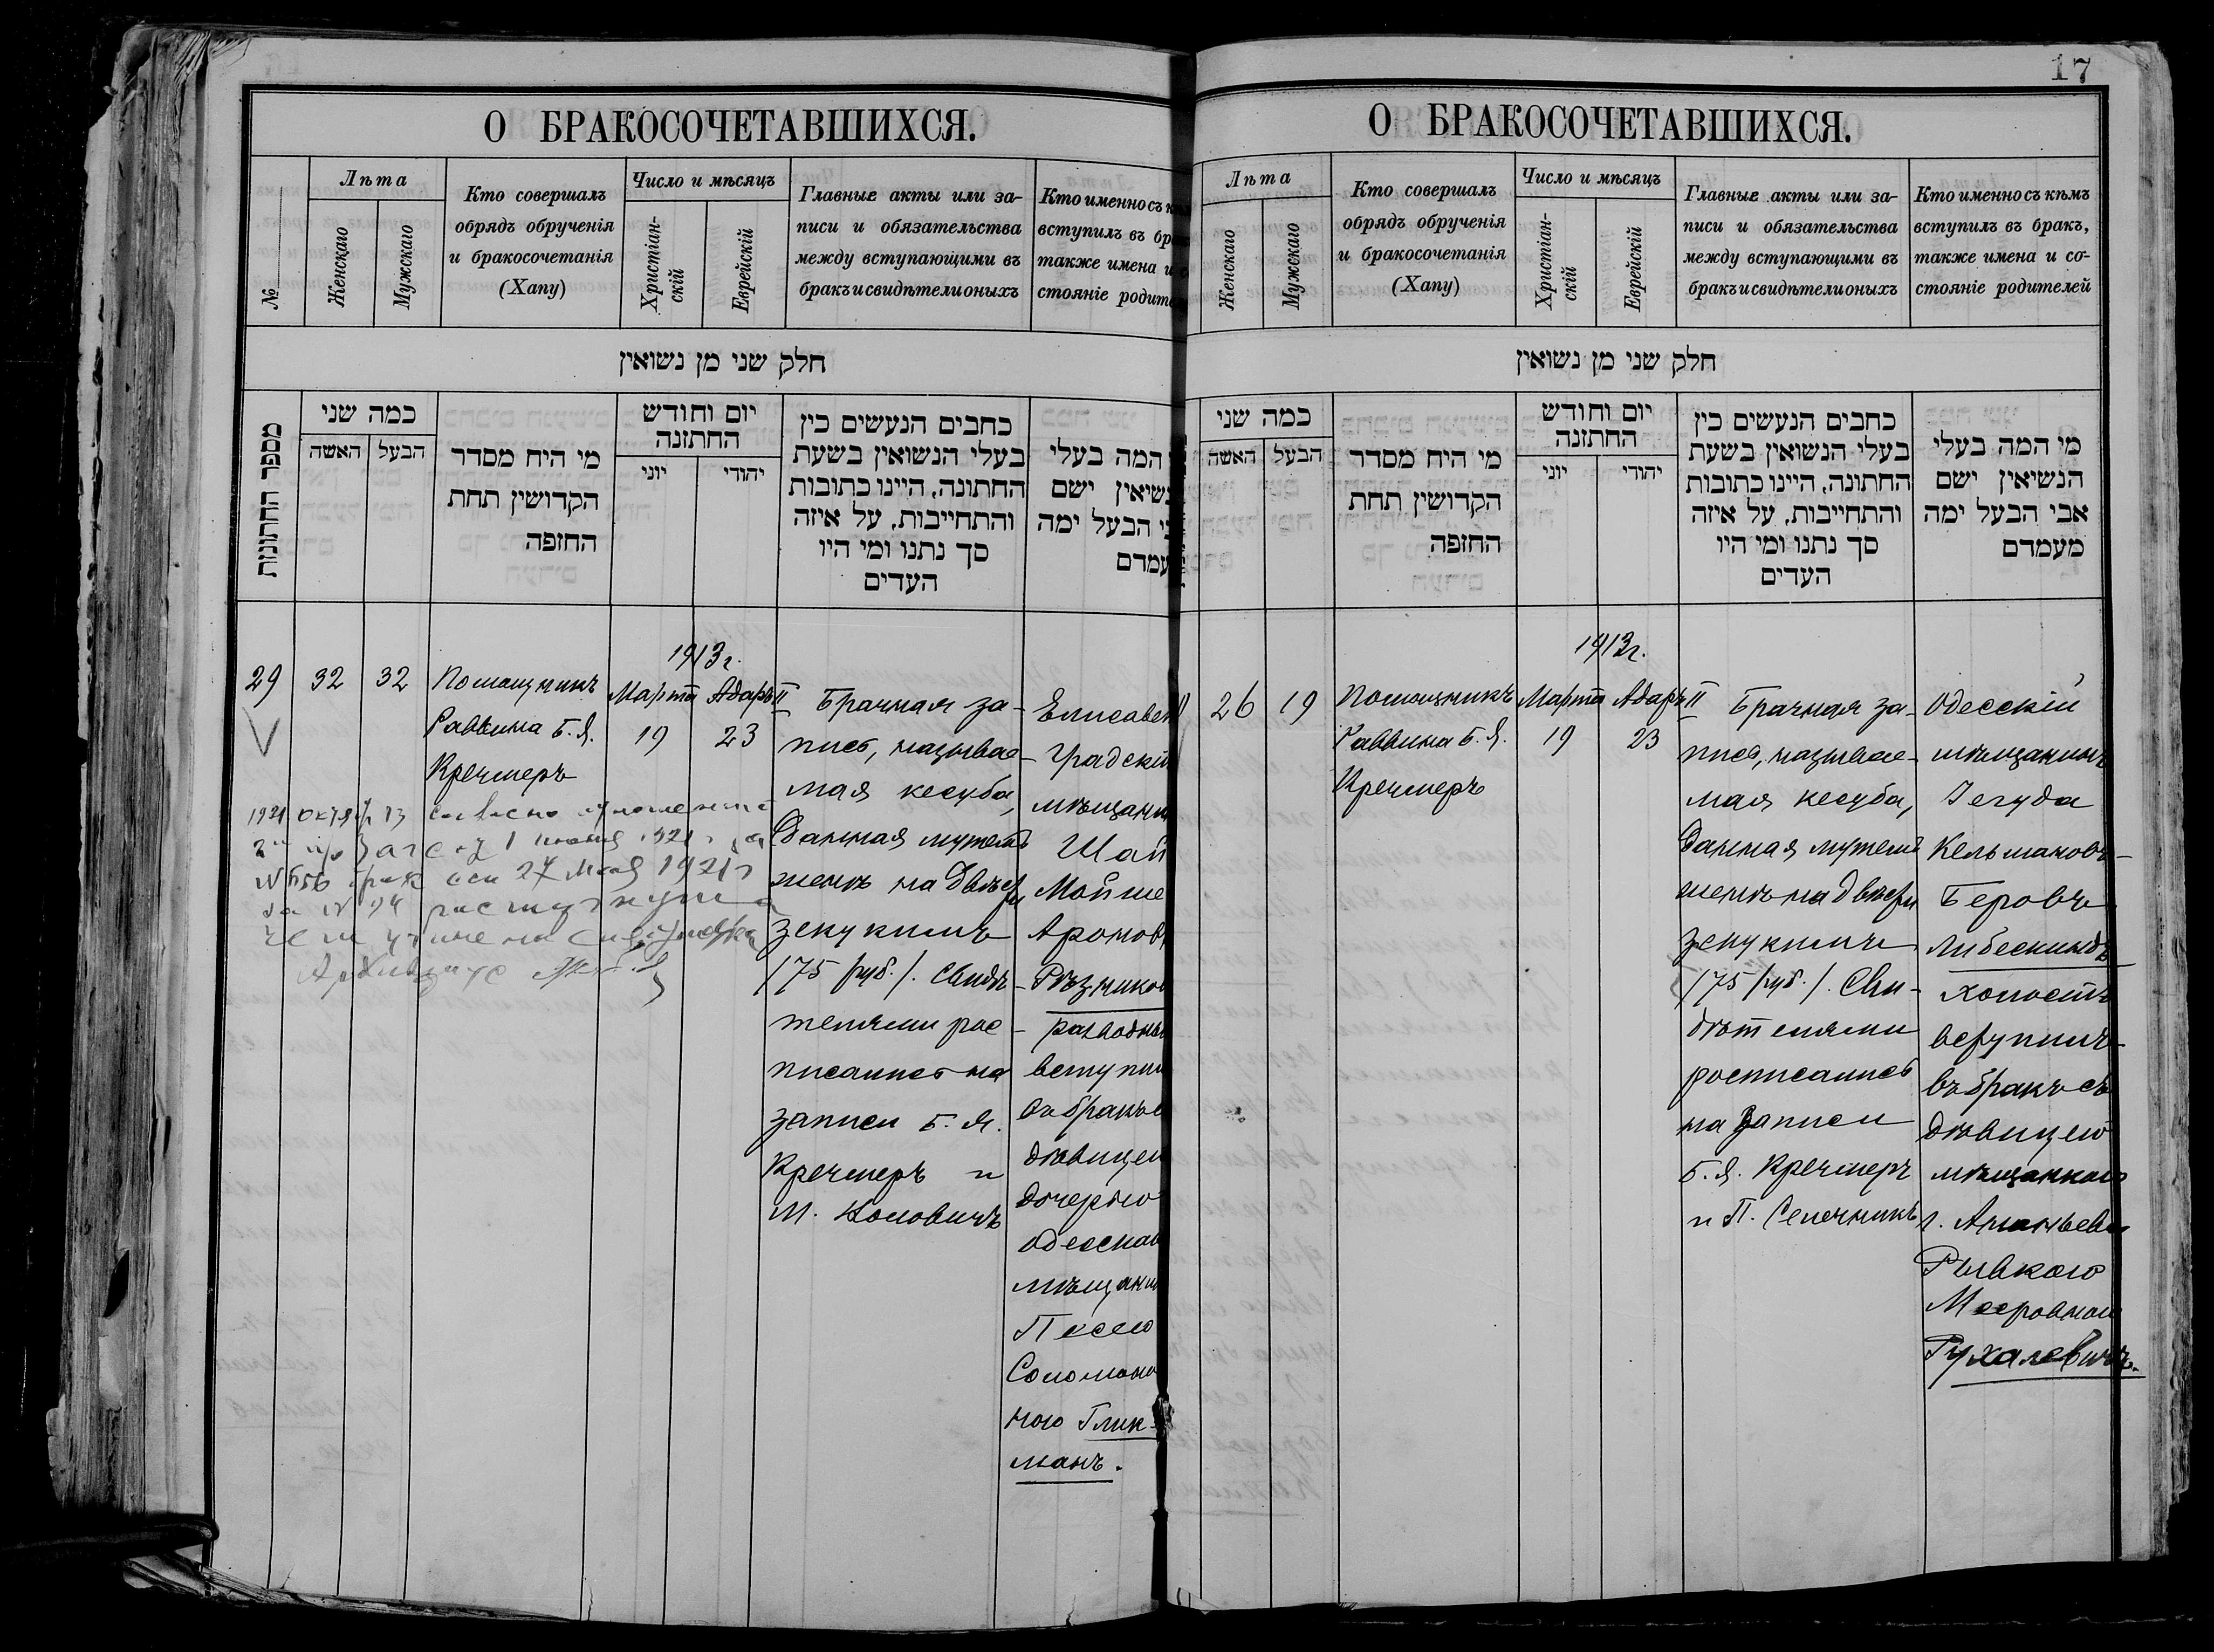 17
О БРАКОСОЧЕТАВШИХСЯ.
№
Лѣта
Женскаго
Мужскаго
Кто совершалъ
обрядъ обрученія
и бракосочетанія
(Хапу)
Число и мѣсяцъ
Христіан-
скій
Еврейскій
Главные акты или за-
писи и обязательства
между вступающими въ
бракъ и свидѣтели оныхъ
Кто именно съ
вступилъ въ
также имена и
стояніе
חלק שני מן נשואין
מספר החתונות
כמה שני
האשה
הבעל
מי היח מסדר
הקדושין תחת
החופה
יום וחודש
החתונה
יוני
יהודי
כתבים הנעשים בין
בעלי הנשואין בשעת
החתונה, היינו כתובות
והתחייבות, על איזה
סך נתנו ומי היו
העדים
המה בעלי
ישם
הבעל ימה
29
32
32
Помощникъ
Раввина Б. Я.
Кречмеръ
1913 г.
Марта
19
Адаръ II
23
Брачная за-
пись, называе-
мая кесуба,
данная мужемъ
женѣ на двѣсти
зекукимъ
/75 руб./. Свидѣ-
телями рос-
писались на
записи Б. Я.
Кречмеръ и
М.
Елисавет
градскій
мѣщанин
Шай
Мойше
Аронов
Рѣзников
разводный
вступил
въ бракъ с
дѣвицею
дочерью
одесскаго
мѣщанин
Песею
Соломоно
ною Глик-
манъ.
1921 октяб 13 согласно отношения
загс 1 июня 1921 г за
27 мая 1921 г
расторгнут
О БРАКОСОЧЕТАВШИХСЯ.
Лѣта
Женскаго
Мужскаго
Кто совершалъ
обрядъ обрученія
и бракосочетанія
(Хапу)
Число и мѣсяцъ
Христіан-
скій
Еврейскій
Главные акты или за-
писи и обязательства
между вступающими въ
бракъ и свидѣтели оныхъ
Кто именно съ кѣмъ
вступилъ въ бракъ,
также имена и со-
стояніе родителей
חלק שני מן נשואין
כמה שני
האשה
הבעל
מי היח מסדר
הקדושין תחת
החופה
יום וחודש
החתונה
יוני
יהודי
כתבים הנעשים בין
בעלי הנשואין בשעת
החתונה, היינו כתובות
והתחייבות, על איזה
סך נתנו ומי היו
העדים
מי המה בעלי
הנשיאין ישם
אבי הבעל ימה
מעמדם
26
19
Помощникъ
Раввина Б. Я.
Кречмеръ
1913 г.
Марта
19
Адаръ II
23
Брачная за-
пись, называе-
мая кесуба,
данная мужемъ
женѣ на двѣсти
зекукимъ
/75 руб./. Сви-
дѣтелями
росписались
на записи
Б. Я. Кречмеръ
и П.
Одесскій
мѣщанинъ
Іегуда
Кельмановъ-
Беровъ
Либескиндъ
холостъ
вступилъ
въ бракъ съ
дѣвицею
мѣщанкою
г. Ананьева
Рывкою
Мееровною
Рухалевичъ.